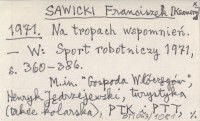 SAWICKI Franciszek [Ksawery]
1971. Na tropach wspomnień.
– W: Sport robotniczy 1971,
s. 360-386.
M.in. "Gospoda Włóczęgów",
Henryk Jędrzejewski, turystyka
(także kolarska), PTK i PTT.